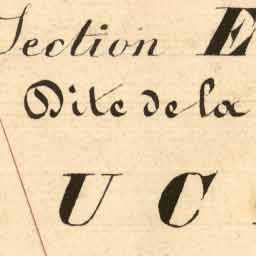 Section E
Dite de la
U C